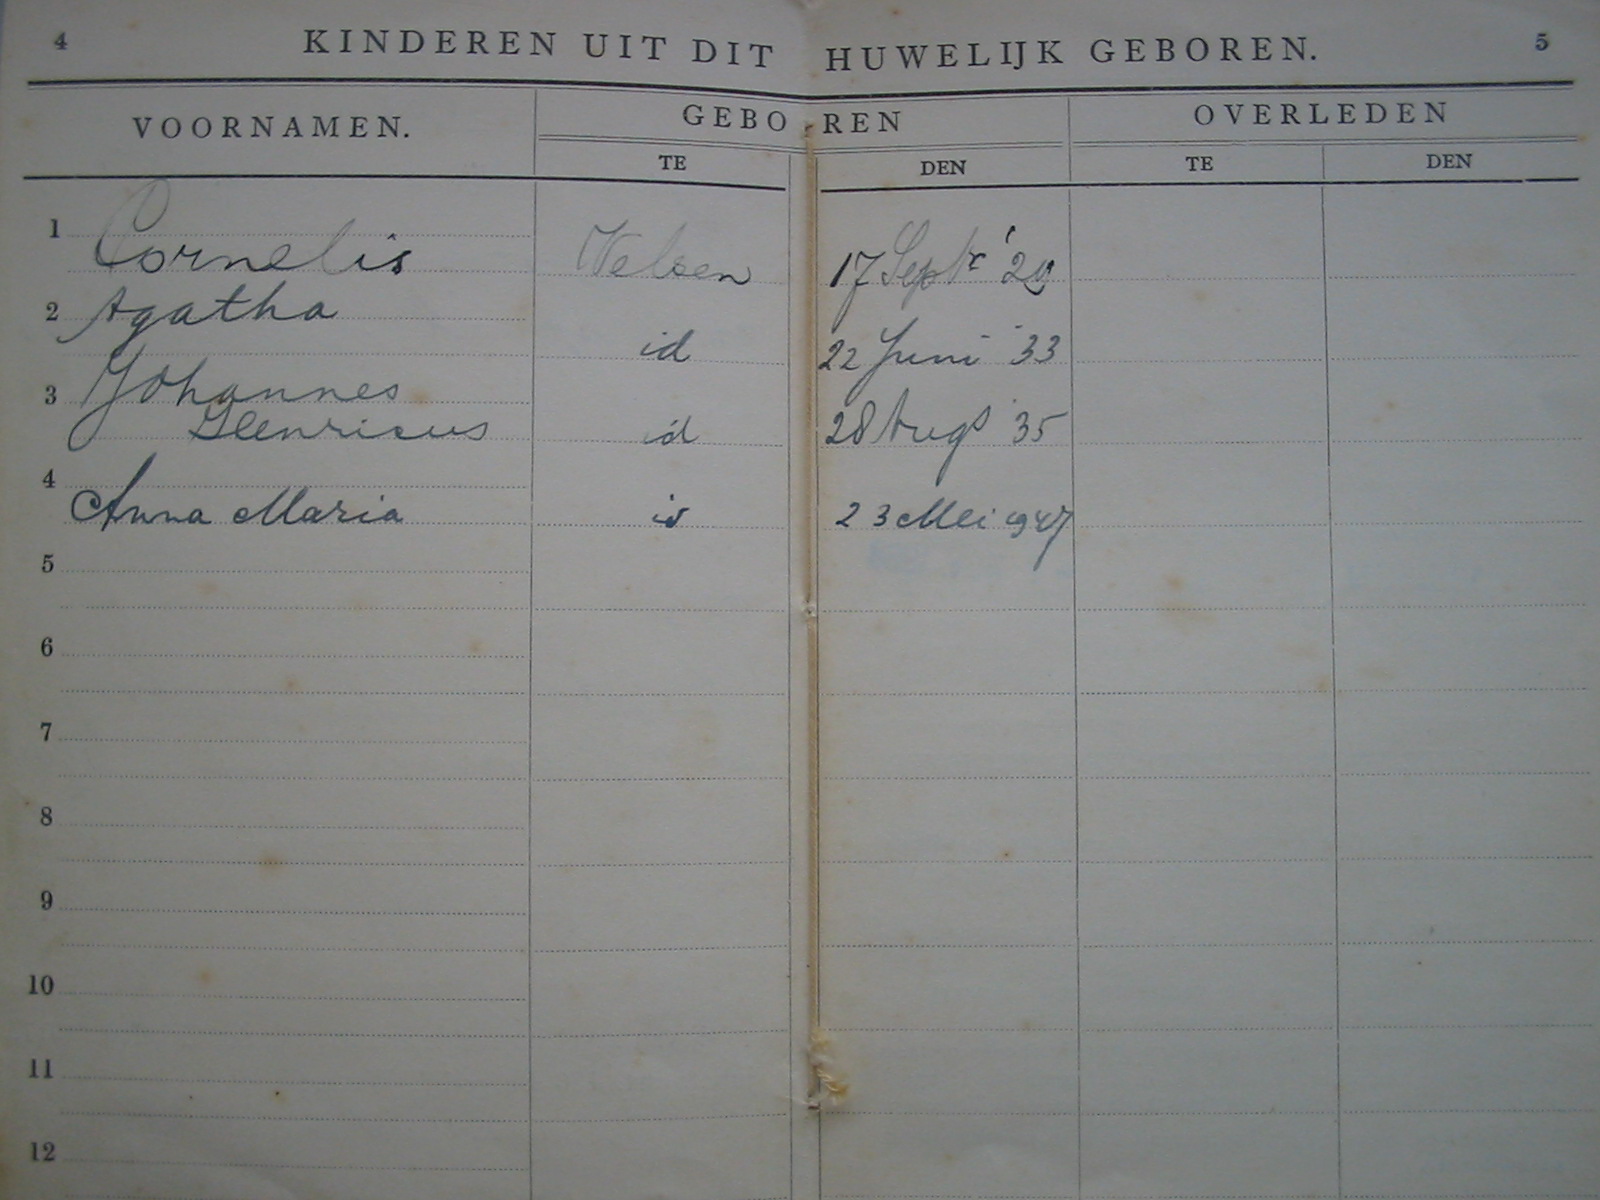 4 KINDEREN UIT DIT HUWELIJK GEBOREN. 5
VOORNAMEN. GEBOREN OVERLEDEN
TE DEN TE DEN
1 Cornelis Velsen 17 Sept
2 Agatha id 22 Juni '33
3 Johannes
Henricus id 28 Augs '35
4 Anna Maria id 23 Mei 1947
5
6
7
8
9
10
11
12